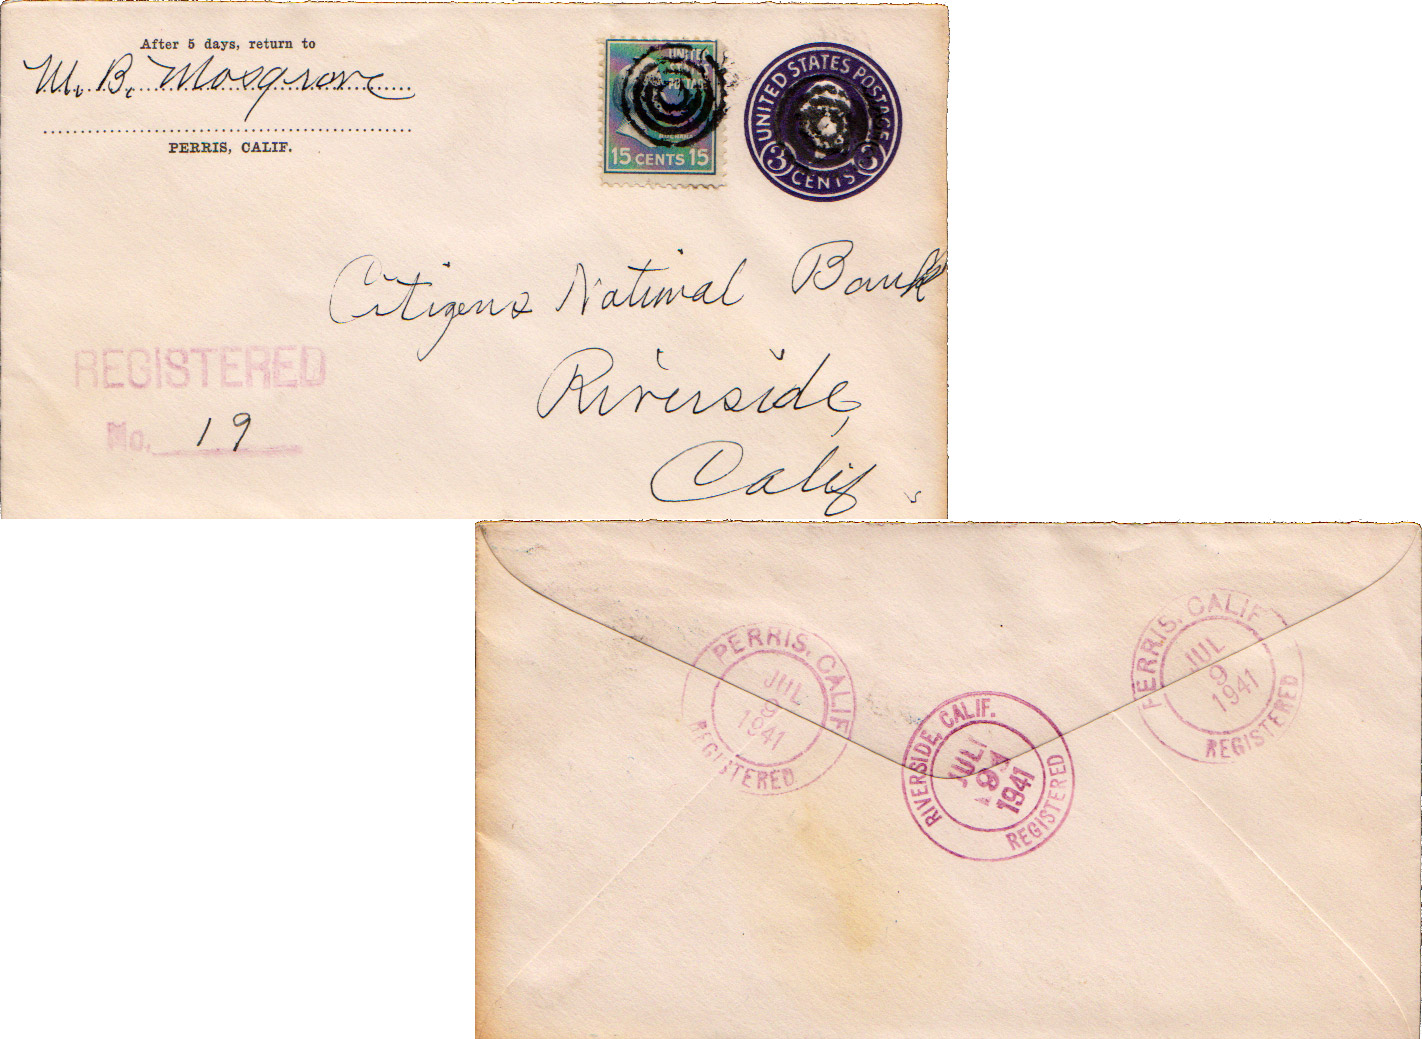 After 5 days, return to
M. B. Mosgrove
PERRIS, CALIF.
UNITED
15 CENTS 15
UNITED STATES POSTAGE
3 CENTS 3
Citizens National Bank
Riverside,
Calif.
REGISTERED
No. 19
PERRIS, CALIF.
JUL
9
1941
REGISTERED
RIVERSIDE, CALIF.
JUL
9
1941
REGISTERED
PERRIS, CALIF.
JUL
9
1941
REGISTERED